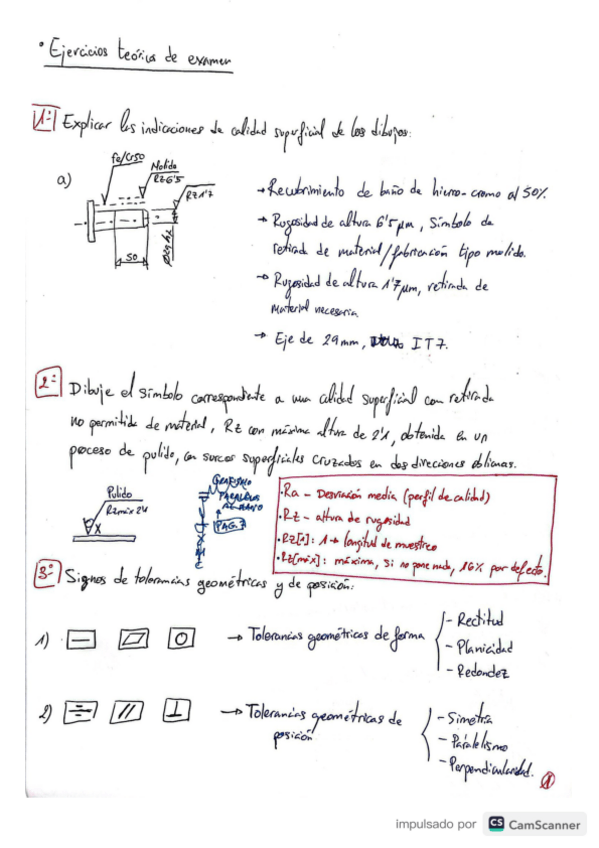 · Ejercicios teórica de examen
1º: Explicar las indicaciones de calidad superficial de los dibujos:
a)
Fe/Cr50
Molido
Rz 6'5
Rz 1'7
50
→ Recubrimiento de baño de hierro-cromo al 50%.
→ Rugosidad de altura 6'5 μm, símbolo de
retirada de material/fabricación tipo molido.
→ Rugosidad de altura 1'7 μm, retirada de
material necesaria.
→ Eje de 29 mm, IT7.
2º: Dibuje el símbolo correspondiente a una calidad superficial con retirada
no permitida de material, Rz con máxima altura de 2'1, obtenida en un
proceso de pulido, con surcos superficiales cruzados en dos direcciones oblicuas.
Pulido
Rzmáx 2'1
X
PARALELO
PAG.7
=
⊥
X
M
C
· Ra - Desviación media (perfil de calidad)
· Rz - altura de rugosidad
· Rz[1]: 1 → longitud de muestreo
· Rz[máx]: máxima, si no pone nada, 16% por defecto.
3º: Signos de tolerancias geométricas y de posición:
1) → Tolerancias geométricas de forma
- Rectitud
- Planicidad
- Redondez
2) → Tolerancias geométricas de
posición
- Simetría
- Paralelismo
- Perpendicularidad.
1
impulsado por CS CamScanner